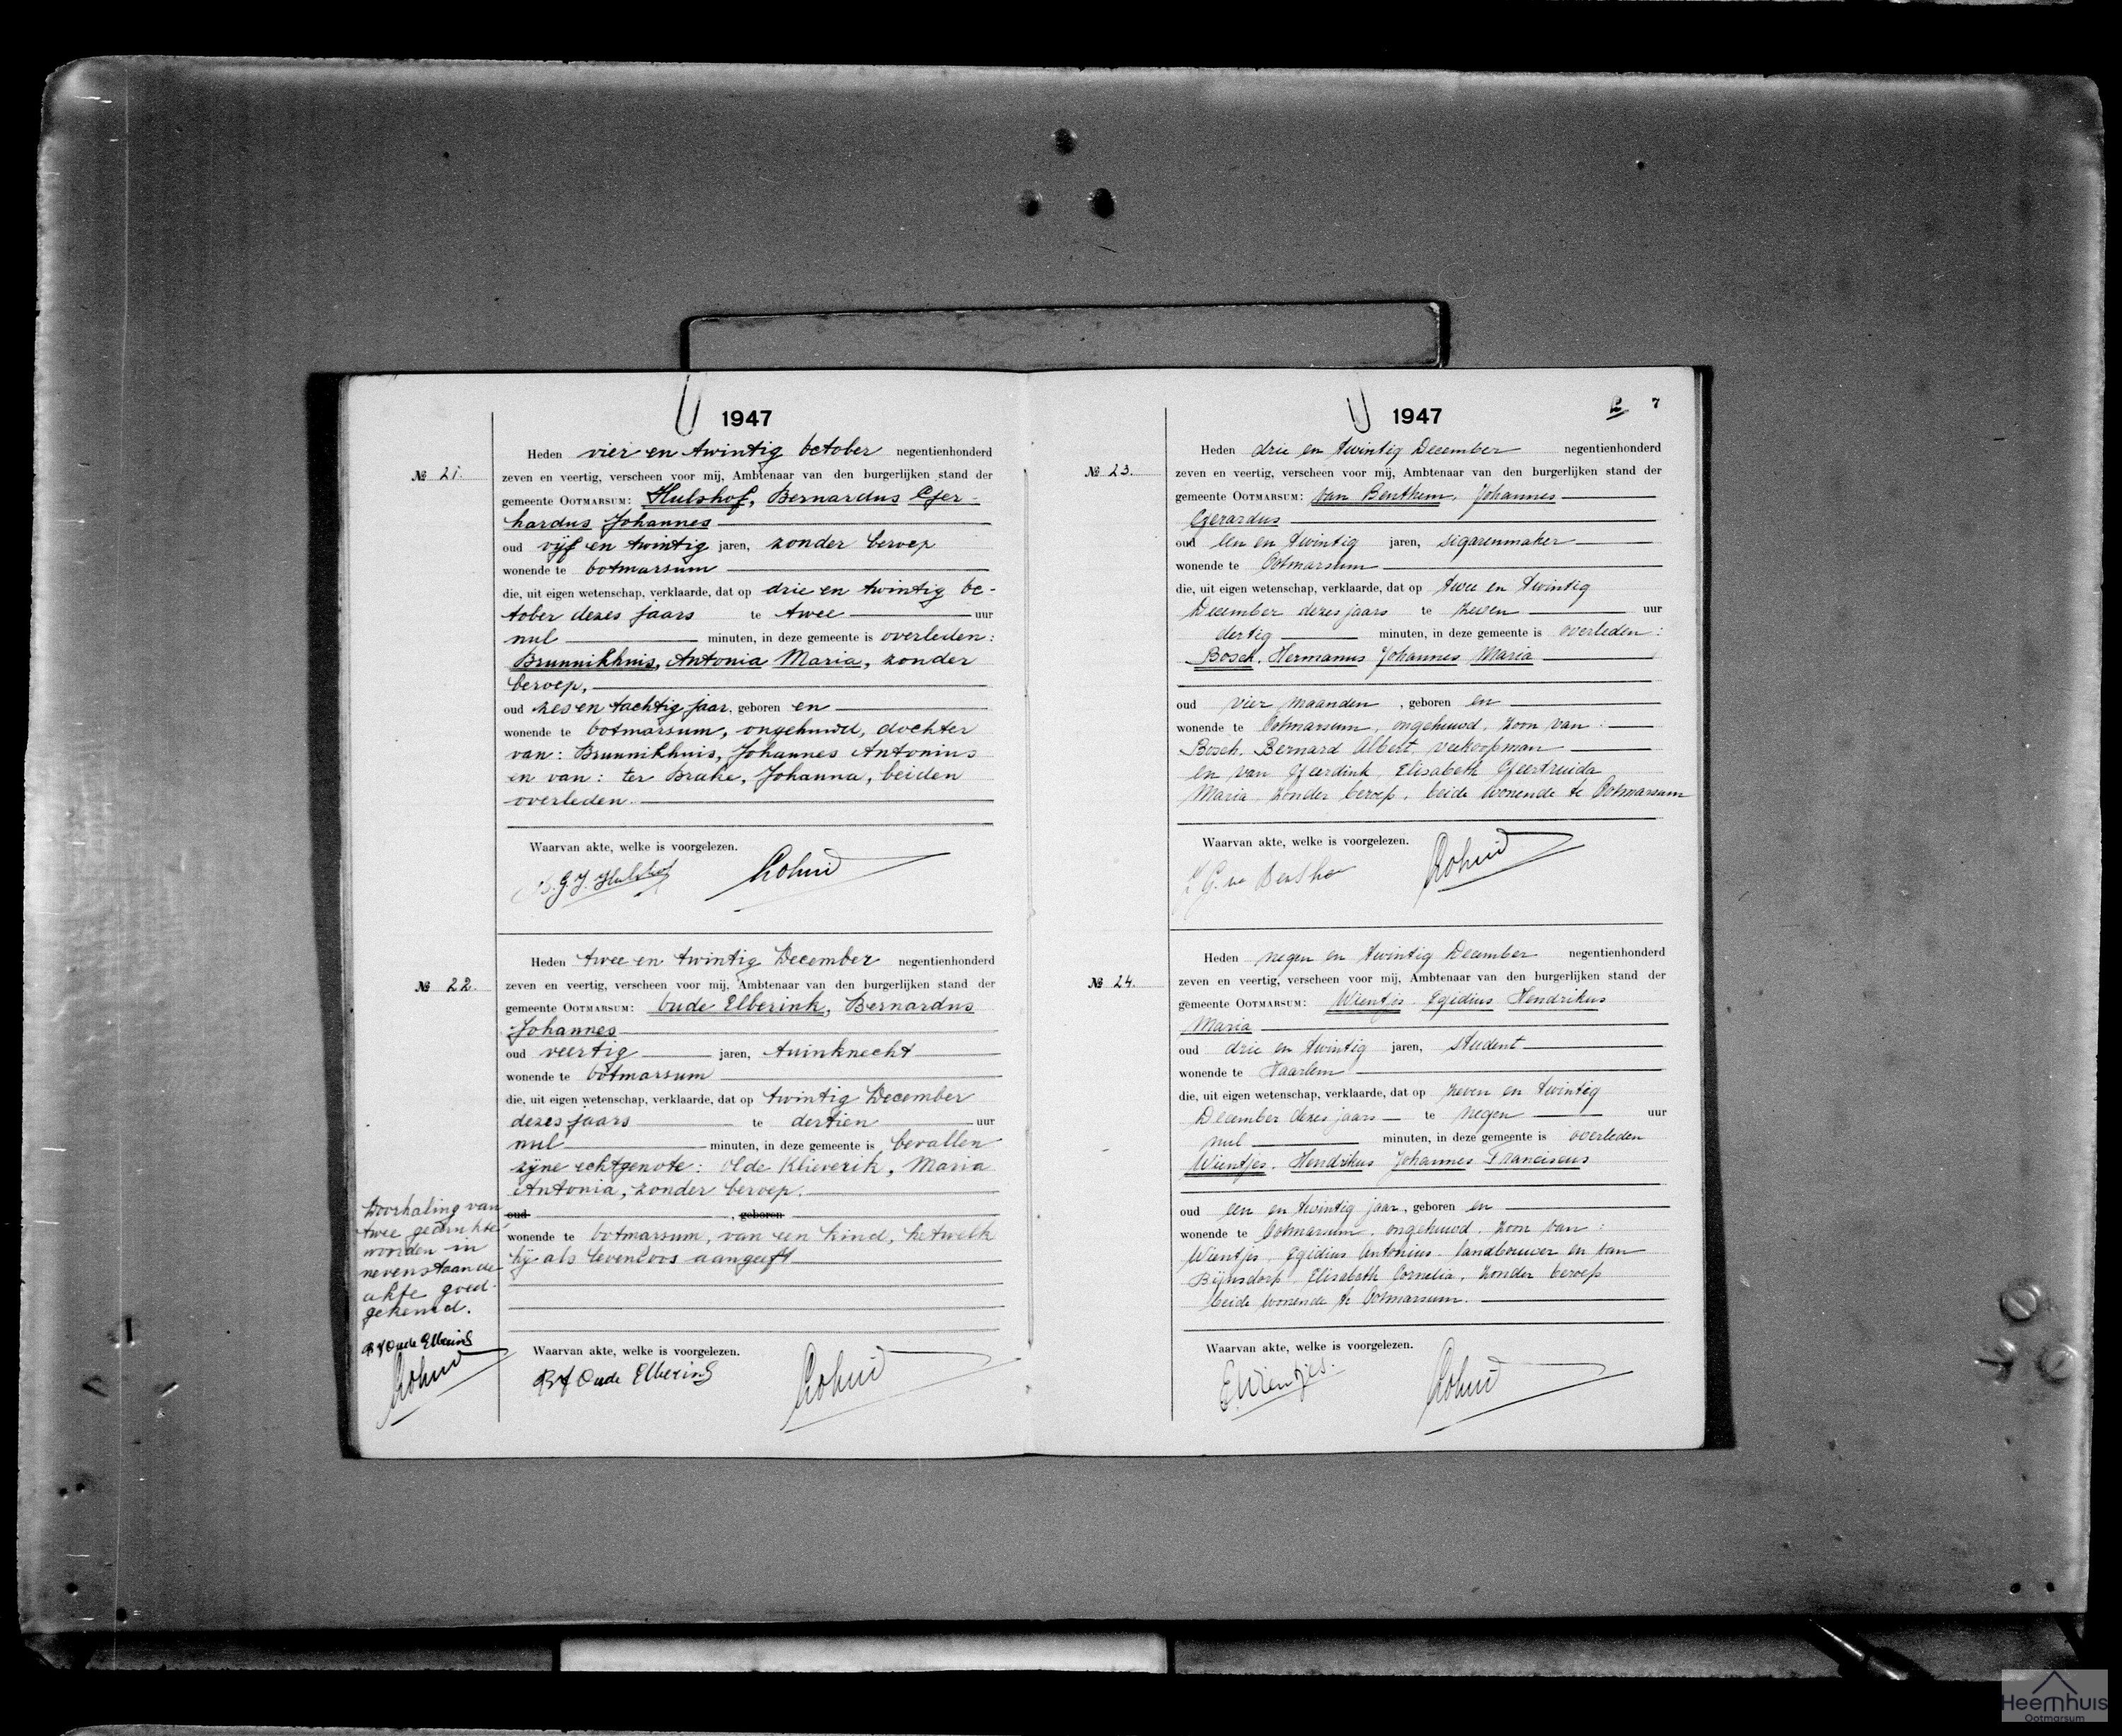 1947
Heden vier en twintig October negentienhonderd
№ 21.
zeven en veertig, verscheen voor mij, Ambtenaar van den burgerlijken stand der
gemeente OOTMARSUM: Hulshof, Bernardus Ger-
hardus Johannes
oud vijf en twintig jaren, zonder beroep
wonende te Ootmarsum
die, uit eigen wetenschap, verklaarde, dat op drie en twintig Oc-
tober dezes jaars te twee uur
nul minuten, in deze gemeente is overleden:
Brunnikhuis, Antonia Maria, zonder
beroep,
oud zes en tachtig jaar, geboren en
wonende te Ootmarsum, ongehuwd, dochter
van: Brunnikhuis, Johannes Antonius
en van: ter Brake, Johanna, beiden
overleden.
Waarvan akte, welke is voorgelezen.
B.G.J. Hulshof
Heden twee en twintig December negentienhonderd
№ 22.
zeven en veertig, verscheen voor mij, Ambtenaar van den burgerlijken stand der
gemeente OOTMARSUM: Oude Elberink, Bernardus
Johannes
oud veertig jaren, tuinknecht
wonende te Ootmarsum
die, uit eigen wetenschap, verklaarde, dat op twintig December
dezes jaars te dertien uur
nul minuten, in deze gemeente is bevallen
zijne echtgenote: Olde Klieverik, Maria
Antonia, zonder beroep.
oud , geboren
wonende te Ootmarsum, van een kind, hetwelk
hij als levenloos aangeeft
Doorhaling van
twee gedrukte
woorden in
nevenstaande
akte goed-
gekeurd.
BJ Oude Elberink
Waarvan akte, welke is voorgelezen.
BJ Oude Elberink
1947
7
Heden drie en twintig December negentienhonderd
№ 23.
zeven en veertig, verscheen voor mij, Ambtenaar van den burgerlijken stand der
gemeente OOTMARSUM: van Benthem, Johannes
Gerardus
oud een en twintig jaren, sigarenmaker
wonende te Ootmarsum
die, uit eigen wetenschap, verklaarde, dat op twee en twintig
December dezes jaars te zeven uur
dertig minuten, in deze gemeente is overleden:
Bosch, Hermanus Johannes Maria
oud vier maanden, geboren en
wonende te Ootmarsum, ongehuwd, zoon van:
Bosch, Bernard Albert, veekoopman
en van Geerdink, Elisabeth Geertruida
Maria, zonder beroep, beide wonende te Ootmarsum
Waarvan akte, welke is voorgelezen.
Heden negen en twintig December negentienhonderd
№ 24.
zeven en veertig, verscheen voor mij, Ambtenaar van den burgerlijken stand der
gemeente OOTMARSUM: Wientjes, Egidius Hendrikus
Maria
oud drie en twintig jaren, student
wonende te Haarlem
die, uit eigen wetenschap, verklaarde, dat op zeven en twintig
December dezes jaars te negen uur
nul minuten, in deze gemeente is overleden
Wientjes, Hendrikus Johannes Franciscus
oud een en twintig jaar, geboren en
wonende te Ootmarsum, ongehuwd, zoon van:
Wientjes, Egidius Antonius, landbouwer en van
Bijnsdorp, Elisabeth Cornelia, zonder beroep
beide wonende te Ootmarsum.
Waarvan akte, welke is voorgelezen.
E. Wientjes.
Heemhuis
Ootmarsum